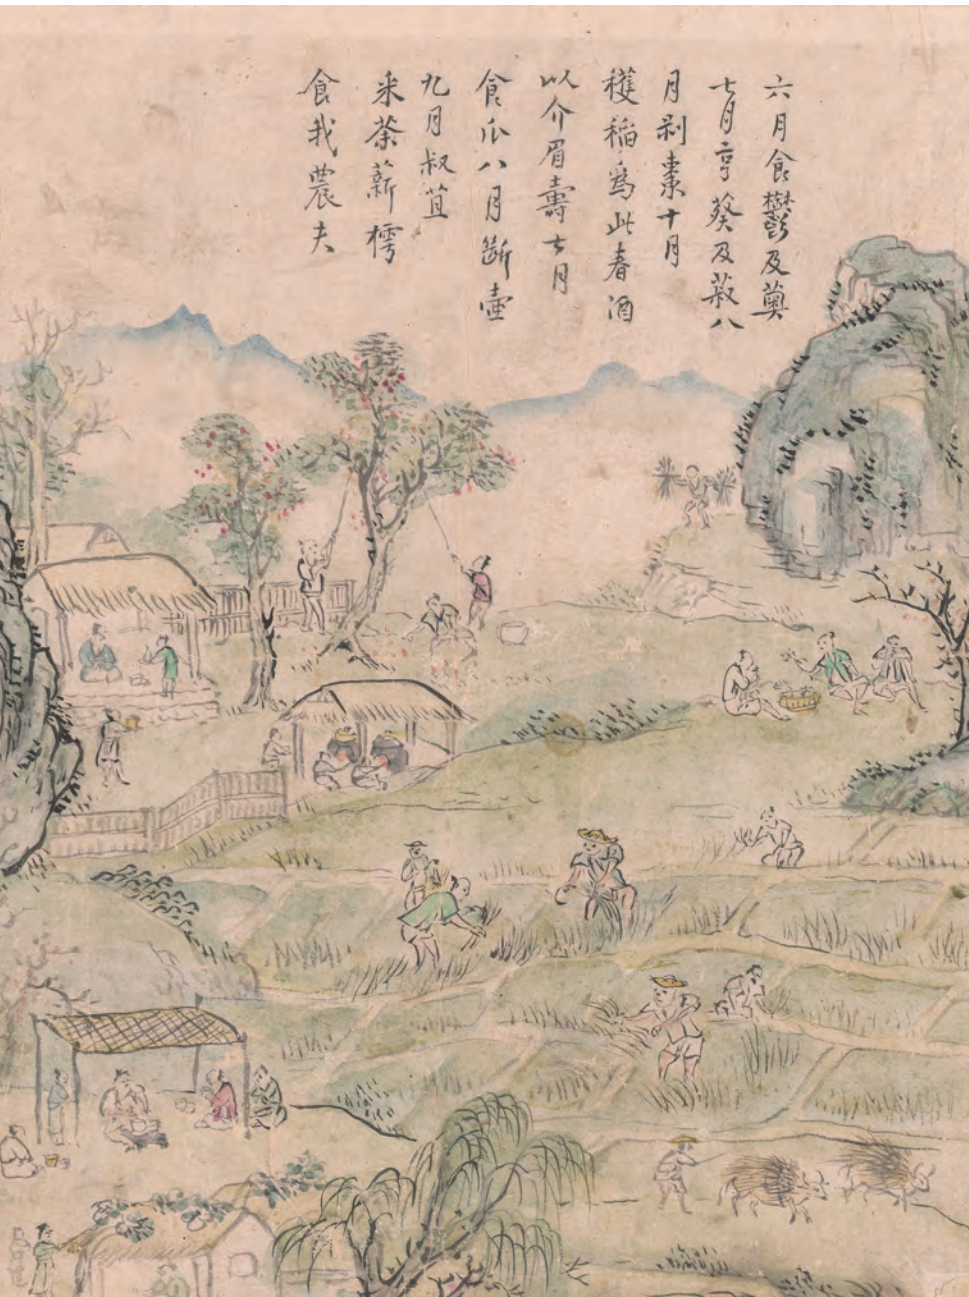 六月食鬱及薁
七月亨葵及菽八
月剥棗十月
穫稲為此春酒
以介眉壽七月
食瓜八月斷壺
九月叔苴
采荼薪樗
食我農夫